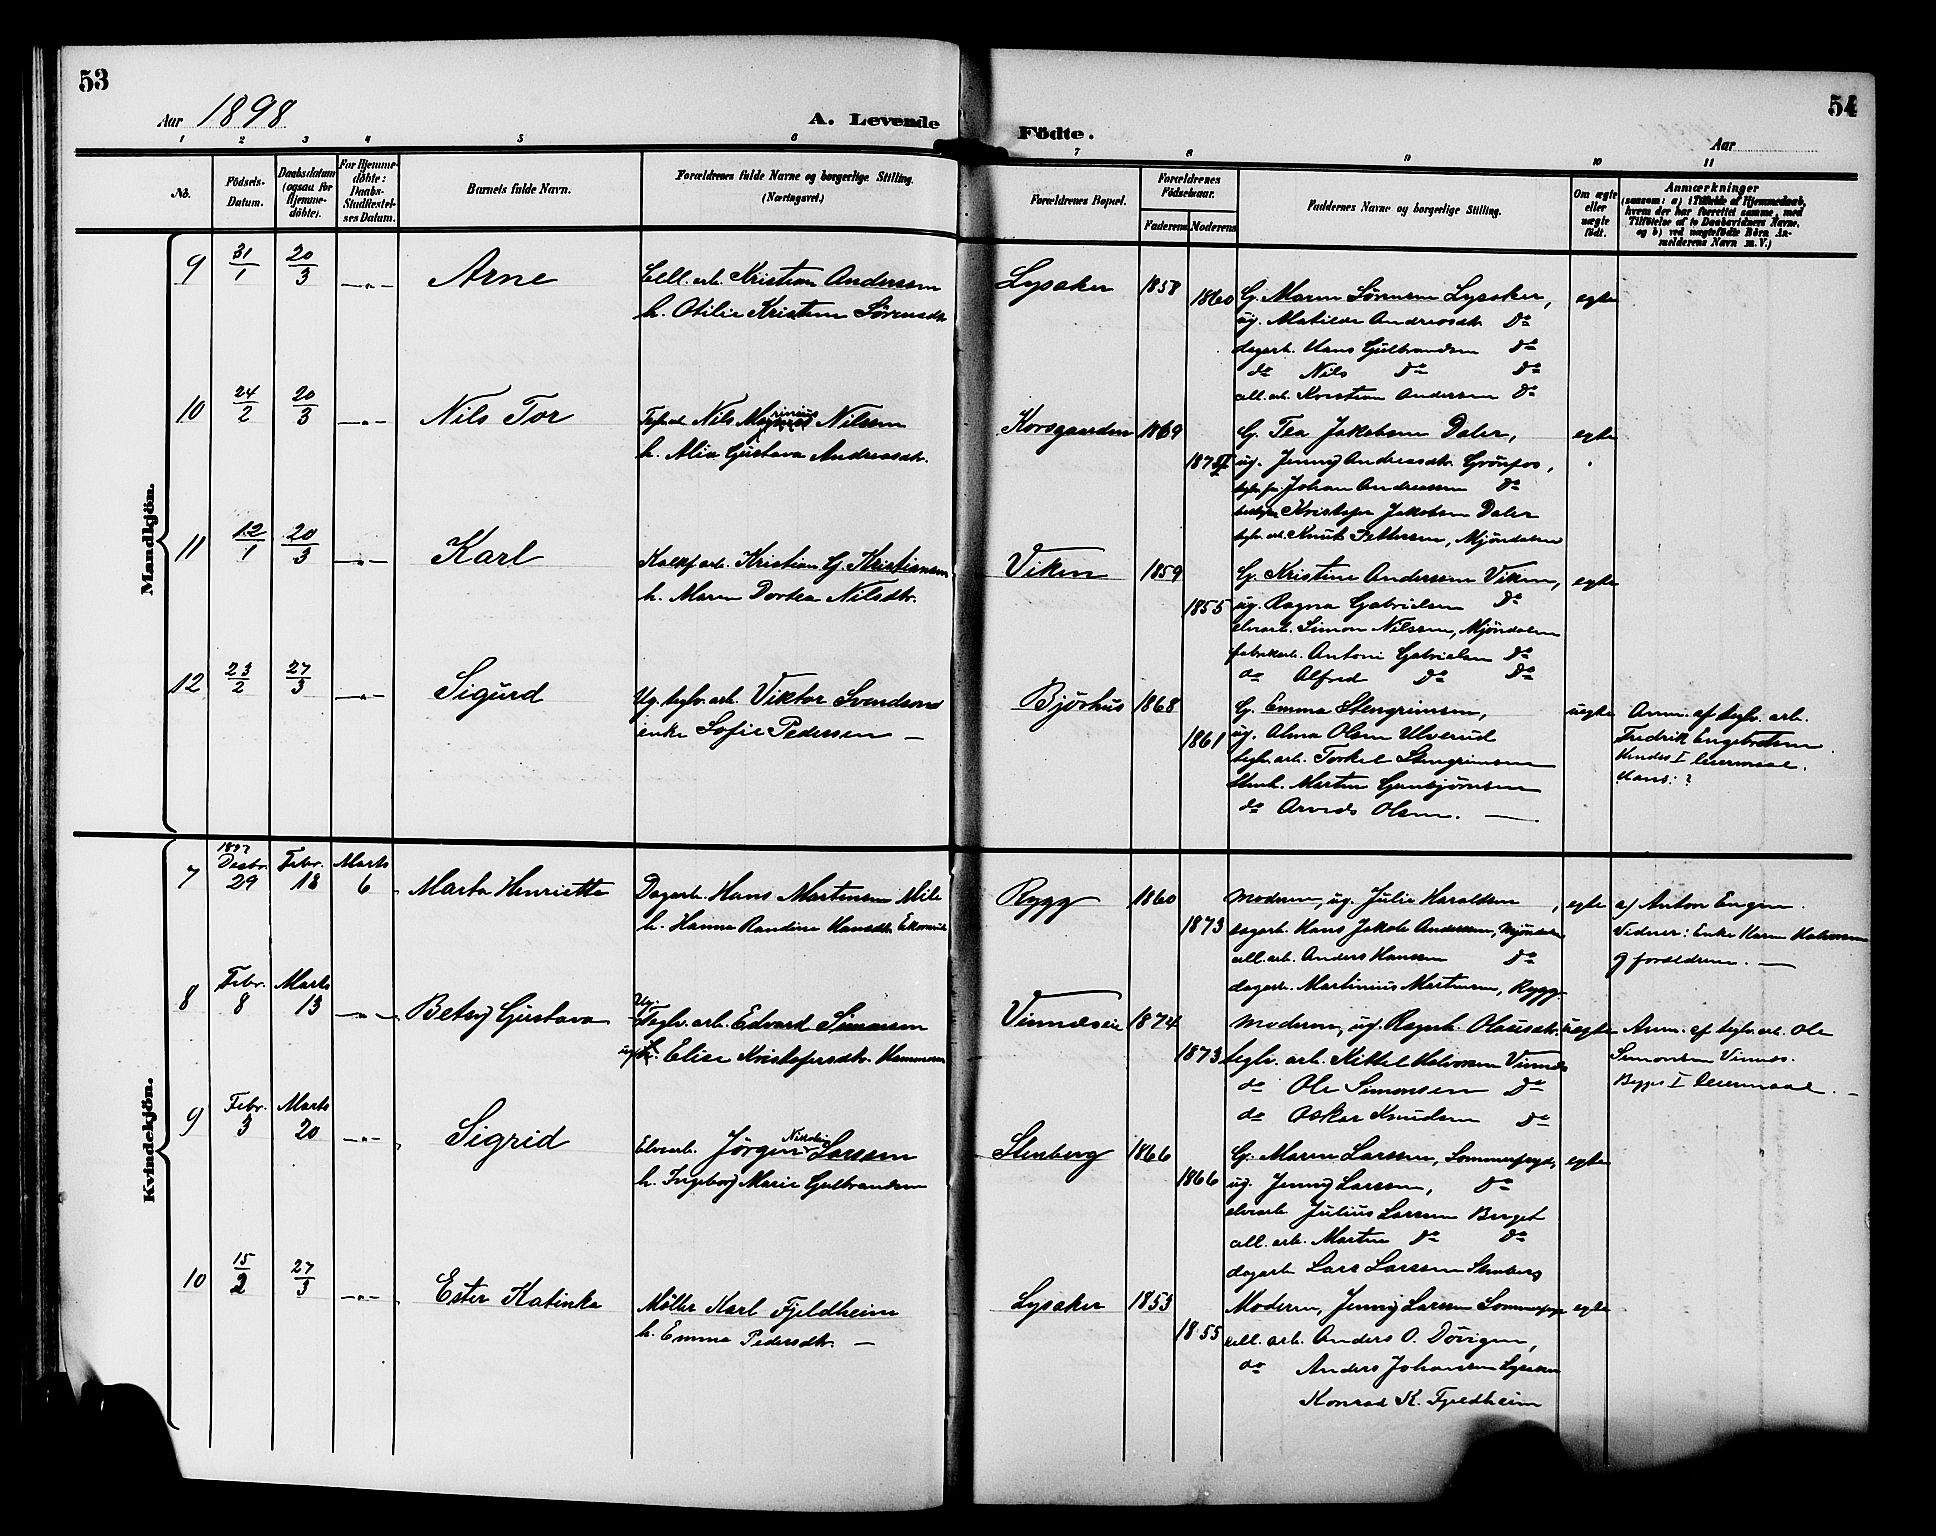 53
54
Aar 1898
A. Levende
Födte.
Aar
1 2 3 4 5 6 7 8 9 10 11
No.
Födsels-Datum.
Daabsdatum (ogsaa for Hjemme-döbte).
For Hjemme-döbte: Daabs-Stadfæstel-ses Datum.
Barnets fulde Navn.
Forældrenes fulde Navne og borgerlige Stilling. (Næringsvei.)
Forældrenes Bopæl.
Forældrenes Födselsaar.
Faderens
Moderens
Faddernes Navne og borgerlige Stilling.
Om ægte eller uægte födt.
Anmærkninger
(saasom: a) i Tilfælde af Hjemmedaab, hvem der har forrettet samme, med Tilföielse af to Daabsvidners Navne, og b) ved uægtefödte Börn An-melderens Navn m. V.)
Mandkjön.
9 31/1 20/3 —„— Arne
Cell. arb. Kristian Anderssen
h. Otilie Kristine Sörensdtr.
Lysaker 1858
1860
G. Maren Sörensen Lysaker,
ug. Matilde Andreasdtr. Do
dagarb. Hans Gulbrandsen Do
do Nils Do Do
cell. arb. Kristian Andersen Do
egte
10 24/2 20/3 —„— Nils Tor
Nils Marinius Nilssen
h. Alia Gustava Andreasdtr.
Korsgaarden 1869
G. Tea Jakobsen Daler,
ug. Jenny Andreasdtr. Grönfos,
Johan Andreassen Do
Kristofer Jakobsen Daler
teglv. arb. Knut Pettersen, Mjöndalen
egte
11 12/1 20/3 —„— Karl
Kalkf. arb. Kristian G. Kristiansen
h. Maren Dortea Nilsdtr.
Viken 1859
1855
G. Kristine Anderssen Viken,
ug. Ragna Gabrielsen Do
elvearb. Simon Nilssen, Mjöndalen
fabrikarb. Antoni Gabrielsen Do
do Alfred Do Do
egte
12 23/2 27/3 —„— Sigurd
Ug. teglv. arb. Viktor Svendsen
enke Sofie Pedersen —
Björhus 1868
1861
G. Emma Stengrimsen,
ug. Alma Olsen Ulverud
teglv. arb. Torkel Stengrimsen
Stenh. Martin Gunbjörnsen
do Arvids Olsen. —
uegte
Anm. af teglv. arb.
Fredrik Engebretsen.
Hendes I leiermaal.
Hans: ?
Kvindekjön.
7 1897 Desbr. 29 Febr. 18 Marts 6 Marta Henriette
Dagarb. Hans Martinsen Mile
h. Hanna Randine Hansdtr.
Rygg 1860
1873
Moderen, ug. Julie Haraldsen,
dagarb. Hans Jakob Anderssen, Mjöndalen
cell. arb. Anders Hanssen Do
dagarb. Martinius Martinsen, Rygg.
egte
af Anton Engen.
Vidner: Enke Karen Halvorsen
og forældrene. —
8 Febr. 8 Marts 13 —„— Betsy Gustava
Ug. Teglv. arb. Edvard Simonsen
ug. Elise Kristofersdtr. Hammeren
Vinnæseie 1874
1873
Moderen, ug. Ragnh. Olausdtr.
teglv. arb. Kittel Halvorsen Vinnes
do Ole Simonsen Do
do Oskar Knudsen Do
uegte
Anm. af teglv. arb. Ole
Simonsen Vinnes.
Begges I leiermaal. —
9 Febr. 3 Marts 20 —„— Sigrid
Elvearb. Jörgen Nikolai Larssen
h. Ingeborg Marie Gulbrandsen
Stenberg 1866
1866
G. Maren Larssen, Sommerfryd,
ug. Jenny Larssen, Do
elvearb. Julius Larssen Berget
cell. arb. Martin Do Do
dagarb. Lars Larssen Stenberg
egte
10 15/2 27/3 —„— Ester Katinka
Möller Karl Fjeldheim
h. Emma Pedersdtr. —
Lysaker 1853
1855
Moderen, Jenny Larssen Sommerfryd
cell. arb. Anders O. Dövigen,
do Anders Johansen Lysaker
Konrad K. Fjeldheim
egte